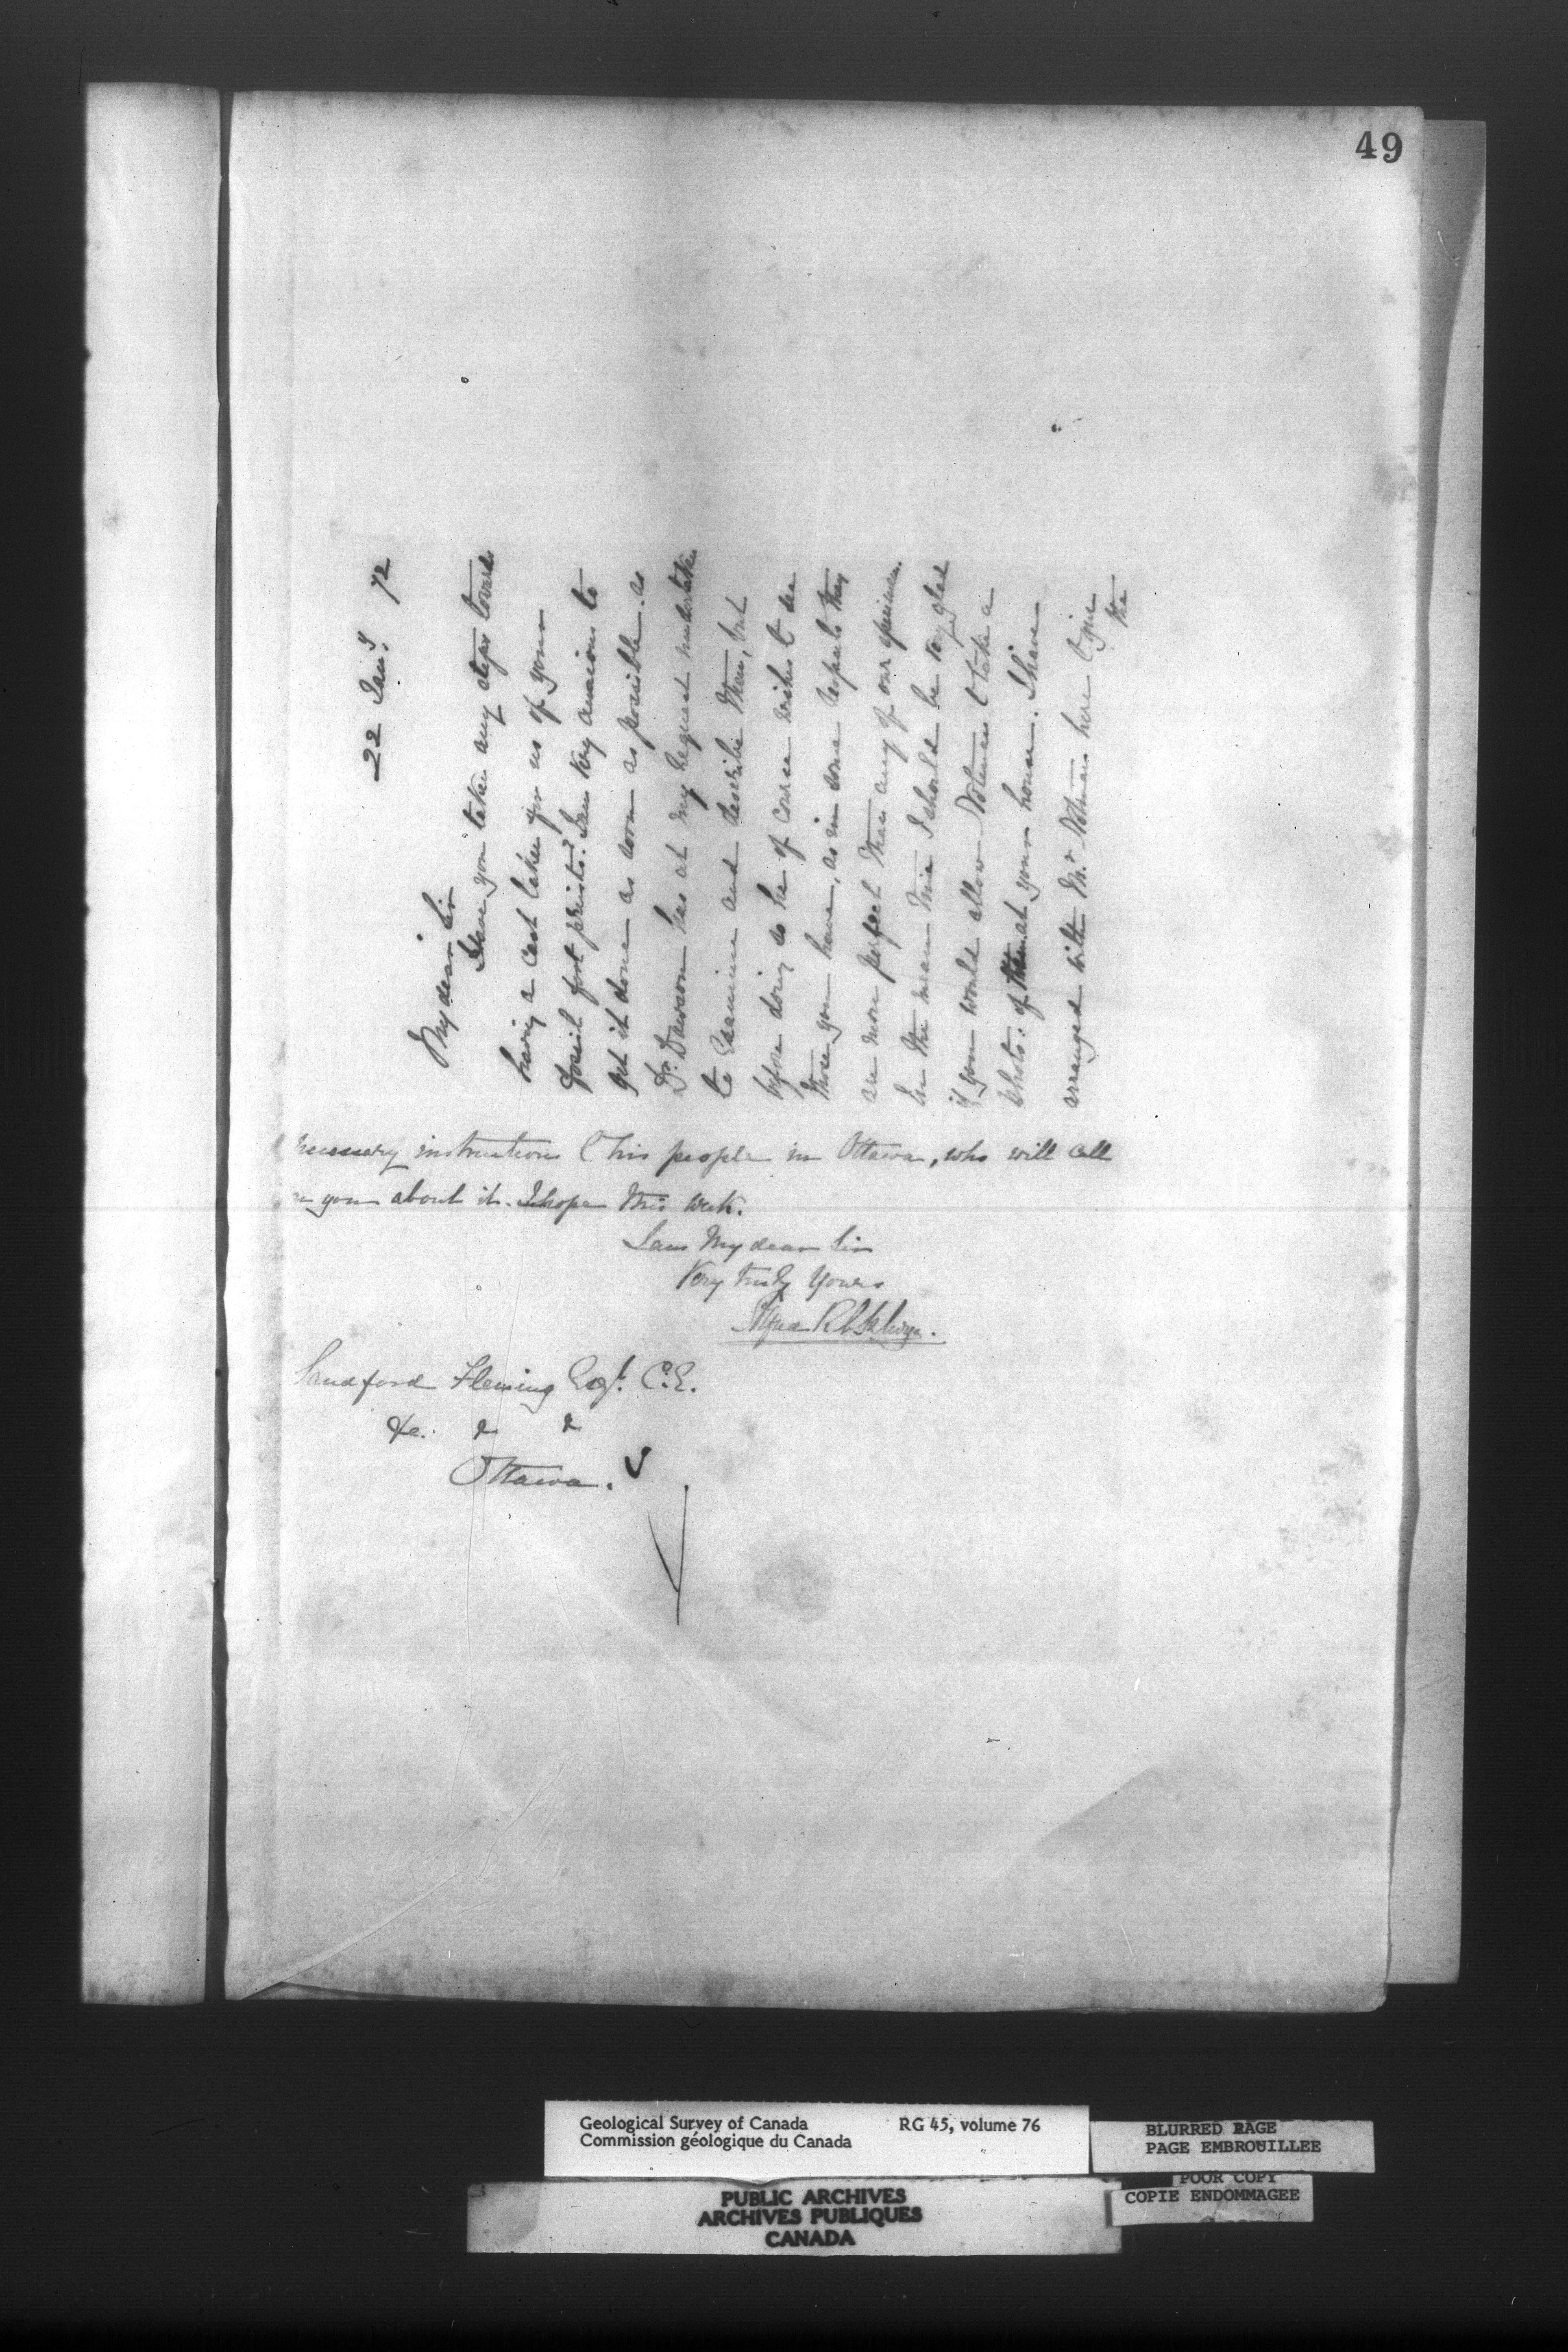 49
22 Jany. 72
My dear Sir
Have you taken any steps towards
having a cast taken for us of your
fossil foot prints? I am very anxious to
get it done as soon as possible. as
Dr. Dawson has at my request undertaken
to Examine and describe them, but
before doing so he of course wishes to see
those you have, as in some respects they
are more perfect than any of our specimens.
In the mean time I should be very glad
if you would allow Notman to take a
photo: of them at your house. I have
arranged with Mr. Notman here to give
the
necessary instructions to his people in Ottawa, who will call
on you about it. I hope this week.
I am My dear Sir
Very truly Yours
Alfred R C Selwyn.
Sandford Fleming Esqr. C.E.
&c. & &
Ottawa.
Geological Survey of Canada RG 45, volume 76
Commission géologique du Canada
BLURRED PAGE
PAGE EMBROUILLEE
POOR COPY
COPIE ENDOMMAGEE
PUBLIC ARCHIVES
ARCHIVES PUBLIQUES
CANADA